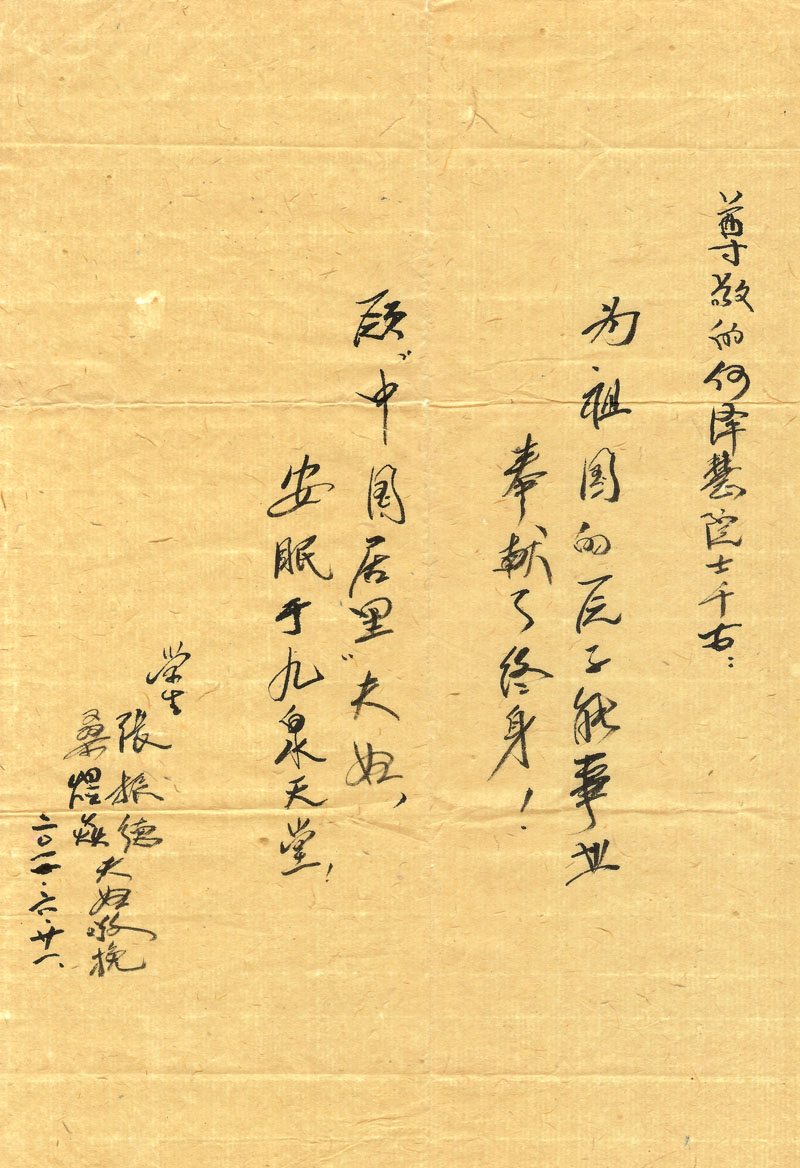 尊敬的何泽慧院士千古：
为祖国的原子能事业
奉献了终身！
愿“中国居里”夫妇，
安眠于九泉天堂！
学生
張振德
桑煜焱
夫妇敬挽
二〇一一.六.廿一、